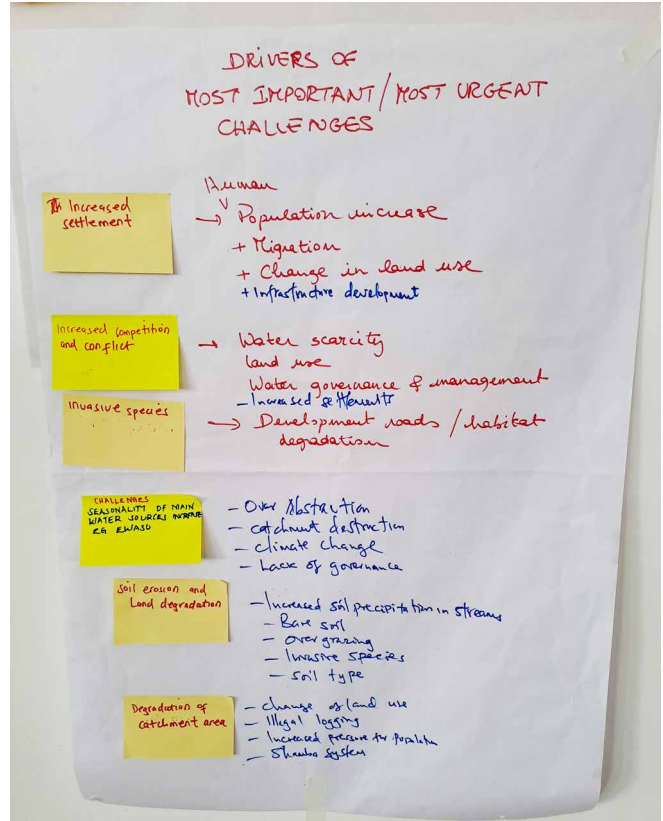 DRIVERS OF
MOST IMPORTANT / MOST URGENT
CHALLENGES
Increased
settlement
Human
→ Population increase
+ Migration
+ Change in land use
+ Infrastructure development
Increased competition
and conflict
→ Water scarcity
land use
Water governance & management
- Increased settlements
Invasive species
→ Development roads / habitat
degradation
CHALLENGES
SEASONALITY OF MAIN
WATER SOURCES INCREASE
EG EWASO
- Over Abstraction
- catchment destruction
- climate change
- Lack of governance
Soil erosion and
Land degradation
- Increased soil precipitation in streams
- Bare soil
- overgrazing
- Invasive species
- soil type
Degradation of
catchment area
- change of land use
- Illegal logging
- Increased pressure for population
- Shamba system